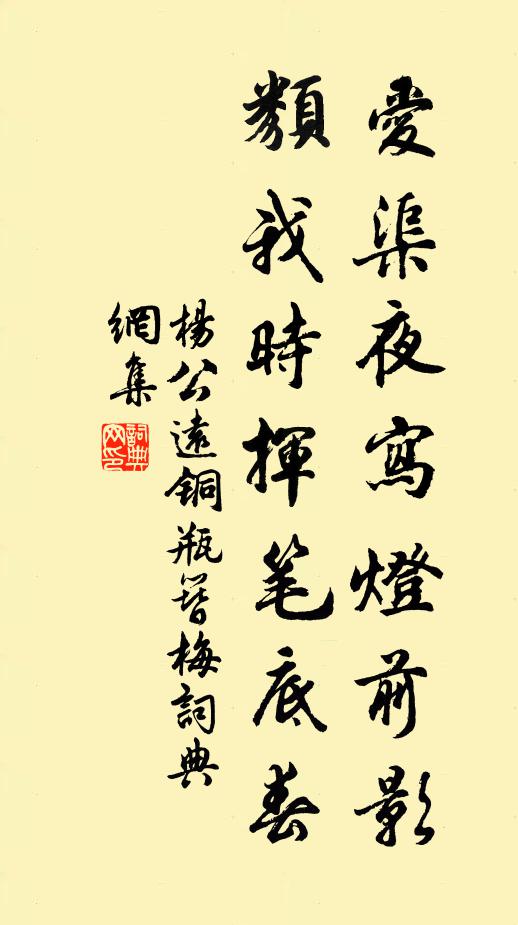 愛渠夜寫燈前影
類我時揮笔底春
楊公遠銅瓶簪梅詞典
網集
詞典
网印